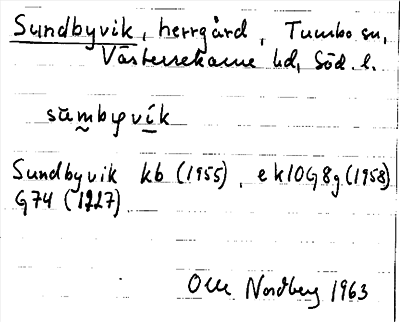 Sundbyvik, herrgård, Tumbo sn,
Västerrekarne hd, Söd. l.
sùmbyvík
Sundbyvik kb (1955), ek10G8g (1958)
G74 (1927)
Olle Nordberg 1963